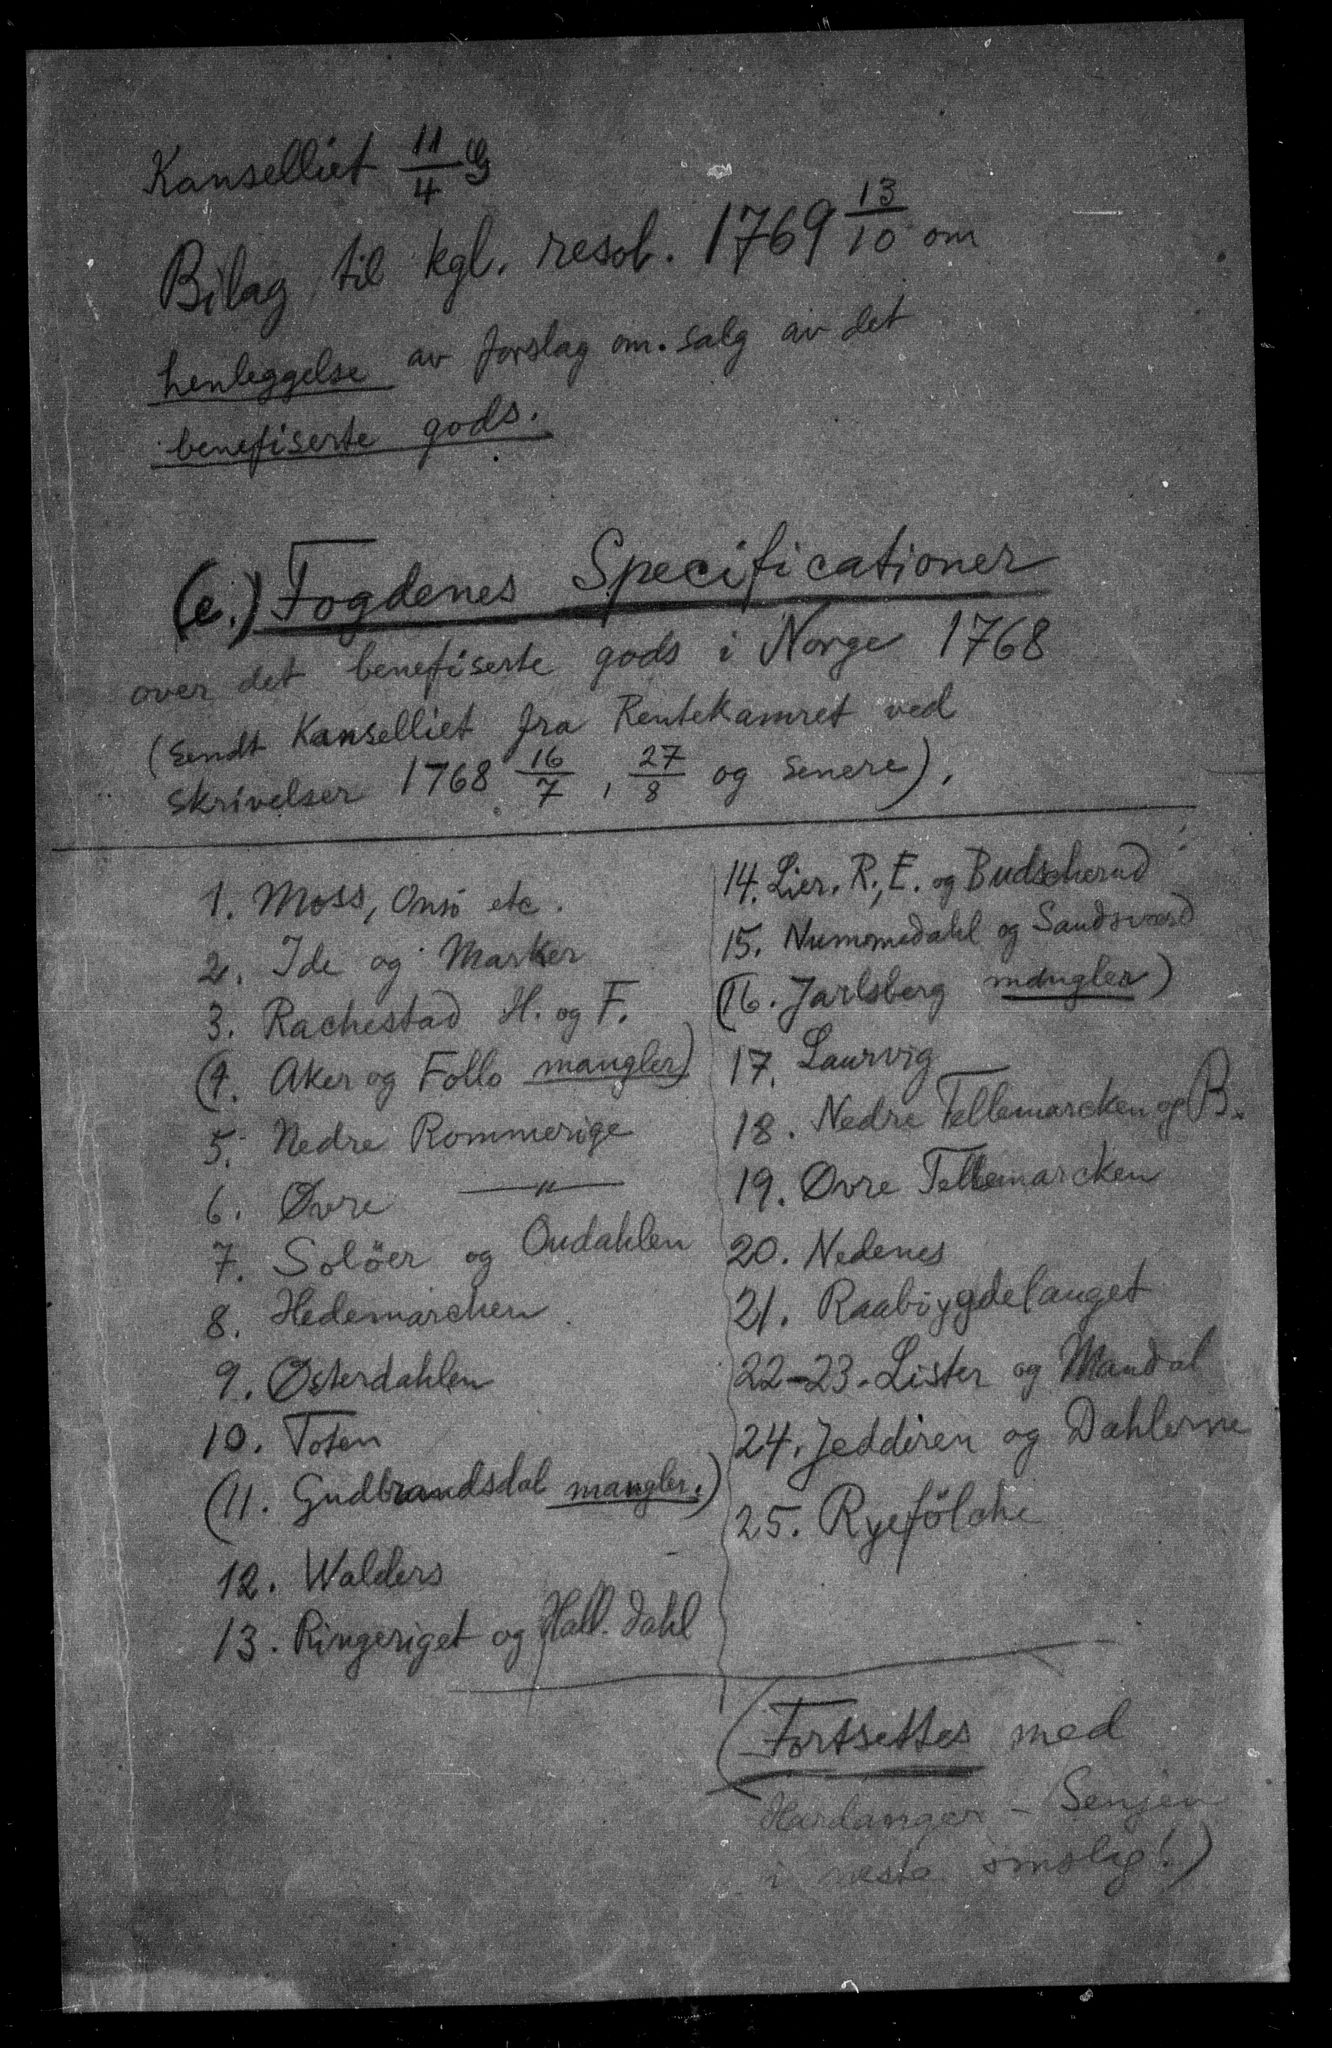 Kanselliet 11/4 G
Bilag til kgl. resol. 1769 13/10 om
henleggelse av forslag om salg av det
benefiserte gods.
(e.) Fogdenes Specificationer
over det benefiserte gods i Norge 1768
(sendt Kanselliet fra Rentekamret ved
skrivelser 1768 16/7, 27/8 og senere).
1. Moss, Onsö etc.
2. Ide og Marker
3. Rachestad H. og F.
(4. Aker og Follo mangler)
5. Nedre Rommerige
6. Øvre —"—
7. Solöer og Oudahlen
8. Hedemarchen
9. Østerdahlen
10. Toten
(11. Gudbrandsdal mangler.)
12. Walders
13. Ringeriget og Hall. dahl
14. Lier, R., E. og Budscherud
15. Nummedahl og Sandsværd
(16. Jarlsberg mangler)
17. Laurvig
18. Nedre Tellemarcken og B.
19. Øvre Tellemarcken
20. Nedenes
21. Raabøygdelauget
22-23. Lister og Mandal
24. Jedderen og Dahlerne
25. Ryefölche
(Fortsettes med
Hardanger - Senjen
i neste omslag!)